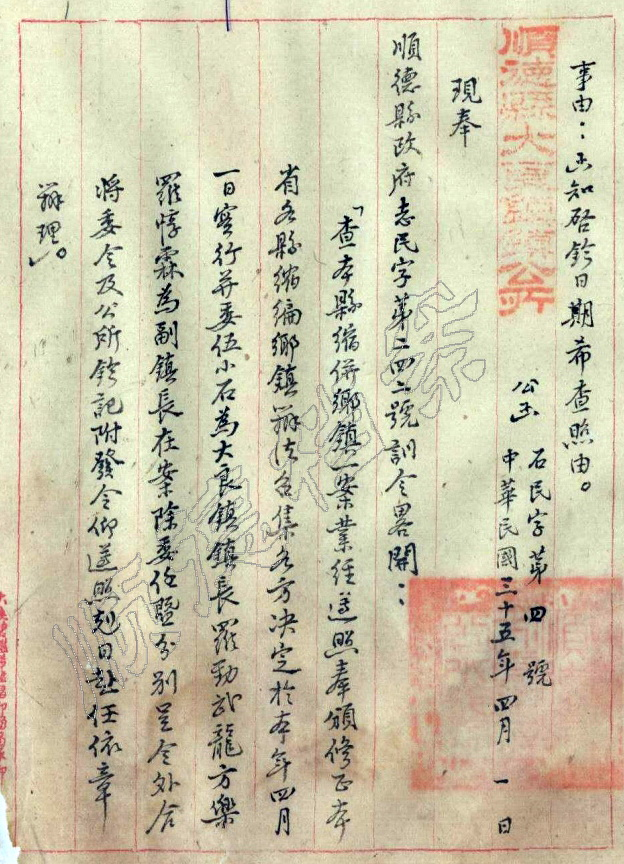 事由：函知啓鈐日期希查照由。
順德縣大良鎮鎮公所
公函
石民字第四號
中華民國三十五年四月一日
現奉
順德縣政府志民字第二四二號訓令畧開：
「查本縣縮併鄉鎮一案業經遵照奉頒修正本
省各縣縮編鄉鎮辦法召集各方决定於本年四月
一日實行并委伍小石為大良鎮鎮長羅勁武龍方樂
羅惇霖為副鎮長在案除委任暨分别呈令外合
將委令及公所鈐記附發令仰遵照尅日赴任依章
辦理」。
順德檔案